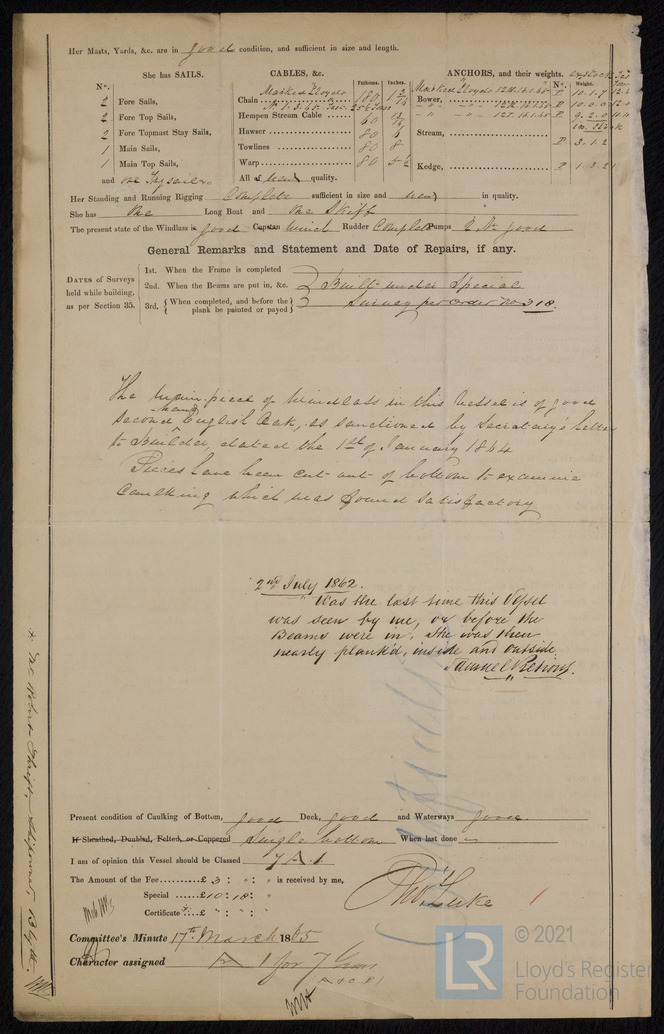 Her Masts, Yards, &c. are in good condition, and sufficient in size and length.
She has SAILS.
CABLES, &c.
ANCHORS, and their weights.
Nº.
Fathoms.
Inches.
Nº.
Weight.
2 Fore Sails,
2 Fore Top Sails,
2 Fore Topmast Stay Sails,
1 Main Sails,
1 Main Top Sails,
and one Trysail
Marked Lloyds
Chain 180
Hempen Stream Cable 60
Hawser 80 6
Towlines 80 8
Warp 80 5½
All of new quality.
Marked Lloyds
Bower, P 10.1.7
P 10.0.0
9.2.0
Stream,
P 3.1.2
Kedge, P 1.3.21
Her Standing and Running Rigging Complete sufficient in size and new in quality.
She has One Long Boat and One Skiff
The present state of the Windlass is good Capstan Winch Rudder Complete Pumps 2 No good
General Remarks and Statement and Date of Repairs, if any.
DATES of Surveys held while building, as per Section 35.
1st. When the Frame is completed
2nd. When the Beams are put in, &c.
3rd. { When completed, and before the plank be painted or payed }
Built under Special
Survey per order No 318
The main piece of windlass in this vessel is of good
second hand English Oak, as sanctioned by Secretary's letter
to Builder, dated the 1st of January 1864
Pieces have been cut out of bottom to examine
Caulking which was found satisfactory
2nd July 1862.
Was the last time this Vessel
was seen by me, or before the
Beams were in. She was then
nearly plank'd, inside and outside
Samuel
Present condition of Caulking of Bottom, good Deck, good and Waterways good.
If Sheathed, Doubled, Felted, or Coppered Single bottom When last done
I am of opinion this Vessel should be Classed 7 A.1
The Amount of the Fee..........£ 3 : " : " is received by me,
Special ......£10 : 18 : "
Certificate ....£ " : " : "
Thos Luke
Committee's Minute 17th March 1865
Character assigned A 1 for 7 Years
© 2021
LR
Lloyd's Register
Foundation